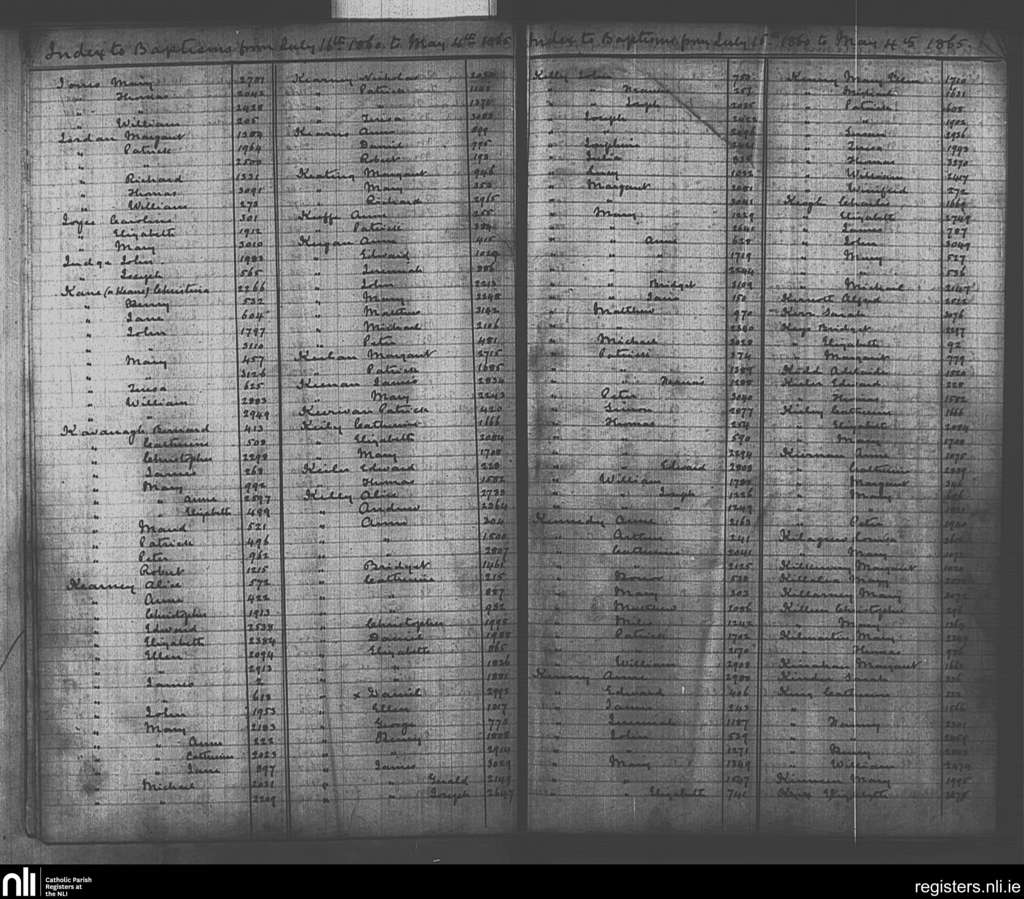 Index to Baptisms from July 16th 1860 to May 4th 1865
Jones Mary 2701
" Thomas 2042
" " 2428
" William 205
Jordan Margaret 1384
" Patrick 1964
" " 2500
" Richard 1331
" Thomas 3091
" William 273
Joyce Caroline 301
" Elizabeth 1912
" Mary 3010
Judge John 1983
" Joseph 565
Kane (or Keane) Christina 2266
" Henry 532
" Jane 604
" John 1797
" " 3110
" Mary 457
" " 3126
" Teresa 625
" William 2883
" " 2949
Kavanagh Bernard 413
" Catherine 508
" Christopher 2298
" James 268
" Mary 992
" " Anne 2597
" " Elizabeth 499
" Maud 521
" Patrick 496
" Peter 962
" Robert 1215
Kearney Alice 572
" Anne 422
" Christopher 1913
" Edward 2538
" Elizabeth 2384
" Ellen 2094
" " 2913
" James 2
" " 618
" John 1953
" Mary 2183
" " Anne 222
" " Catherine 2023
" " Jane 897
" Michael 2031
" " 2209
Kearney Nicholas
" Patrick
" "
" Teresa
Kearns Anne 899
" Daniel 795
" Robert 193
Keating Margaret 946
" Mary 353
" Richard 2965
Keeffe Anne 255
" Patrick
Keegan Anne 415
" Edward 1029
" Jeremiah 886
" John 2213
" Mary 2298
" Matthew 3192
" Michael 2106
" Peter 481
Keehan Margaret 2715
" Patrick 1685
Keenan James 2834
" Mary 2243
Keerivan Patrick 420
Keily Catherine 1666
" Elizabeth 2084
" Mary 1708
Keiler Edward 228
" Thomas 1582
Kelly Alice 2733
" Andrew 2364
" Anne 304
" " 1500
" " 2807
" Bridget 1461
" Catherine 215
" " 827
" " 982
" Christopher 1995
" Daniel 1988
" Elizabeth 865
" " 1826
" " 1881
" x Daniel 2993
" Ellen 1017
" George 773
" Henry 1808
" " 2914
" James 3029
" " Gerald 2149
" " Joseph 2647
Index to Baptisms from July 16th 1860 to May 4th 1865.
Kelly John 750
" " Francis 257
" " Joseph 2035
" Joseph 2422
" " 2096
" Josephine
" Julia 835
" Lucy 1033
" Margaret 2081
" " 3041
" Mary 1229
" " 2641
" " Anne 628
" " 1719
" " 2294
" " Bridget 2109
" " Jane 150
" Matthew 970
" " 2390
" Michael 2028
" Patrick 374
" " 1387
" " Francis 1288
" Peter 3090
" Simon 2877
" Thomas 254
" " 590
" " 2294
" " Edward 2808
" William 1782
" " Joseph 1226
" " " 1249
Kennedy Anne 2163
" Arthur 241
" Catherine 2041
" " 2125
" Honor 538
" Mary 303
" Matthew 2086
" Miles 1242
" Patrick 1702
" " 2170
" William 2908
Kenny Anne 2980
" Edward 406
" James 243
" Jeremiah 1187
" John 529
" " 1271
" Mary 1349
" " 1547
" " Elizabeth 741
Kenny Mary Ellen 1710
" Michael 1631
" Patrick 608
" " 1902
" Susan 2936
" Teresa 1993
" Thomas 3370
" William 2417
" Winifred 272
Keogh Charles 1669
" Elizabeth 2749
" James 787
" John 3049
" Mary 527
" " 536
" Michael 2147
Kermott Alfred 2022
Kerr Sarah 3076
Keys Bridget 2297
" Elizabeth 92
" Margaret 779
Kidd Adelaide 1820
Kieler Edward 228
" Thomas 1582
Kieley Catherine 1666
" Elizabeth 2084
" Mary 1708
Kiernan Anne 1075
" Catherine 2239
" Margaret
" Mary
" "
" Peter
Kilagrew Louisa
" Mary
Kilkenny Margaret
Killalea Mary
Killarney Mary
Killeen Christopher
" Mary
Kilmartin Mary
" Thomas
Kinahan Margaret
Kinder Sarah
King Catherine
" "
" Fanny
" "
" Henry
" William 2479
Kinnen Mary 1995
nli
Catholic Parish
Registers at
the NLI
registers.nli.ie